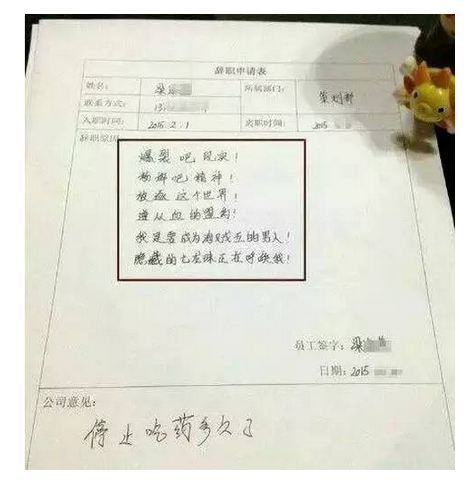 辞职申请表
姓名: 梁 所属部门: 策划部
联系方式: 13
入职时间: 2015.2.1 离职时间: 2015
辞职原因
爆裂吧现实!
粉碎吧精神!
放逐这个世界!
遵从血的盟约!
我是要成为海贼王的男人!
隐藏的七龙珠正在呼唤我!
员工签字: 梁
日期: 2015
公司意见:
停止吃药多久了